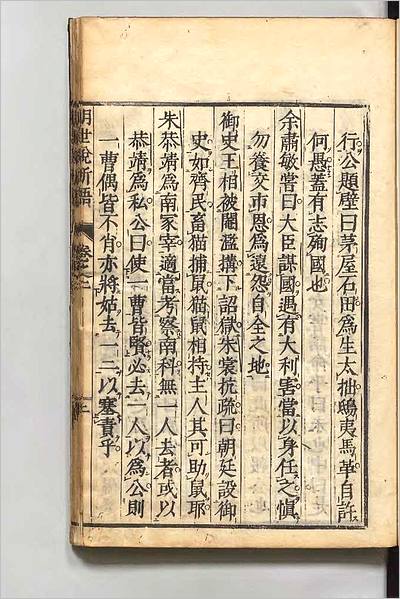 行公題壁曰茅屋石田爲生太拙鴟夷馬革自許
何愚蓋有志殉國也
余肅敏嘗曰大臣謀國遇有大利害當以身任之愼
勿養交市恩爲遠怨自全之地
御史王相被閹濫搆下詔獄朱裳抗疏曰朝廷設御
史如齊民畜猫捕鼠猫鼠相持主人其可助鼠耶
朱恭靖爲南冢宰適當考察南科無一人去者或以
恭靖爲私公曰使一曹皆賢必去一人以爲公則
一曹偶皆不肖亦將姑去一二以塞責乎
明世說新語
卷之二